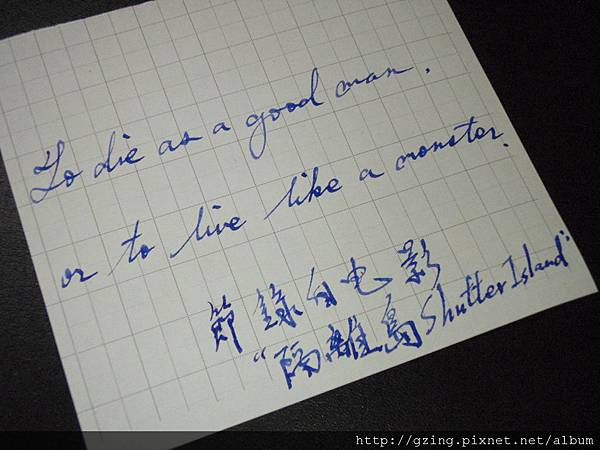 To die as a good man,
or to live like a monster.
節錄自电影
“隔離島Shutter Island”
http://gzing.pixnet.net/album